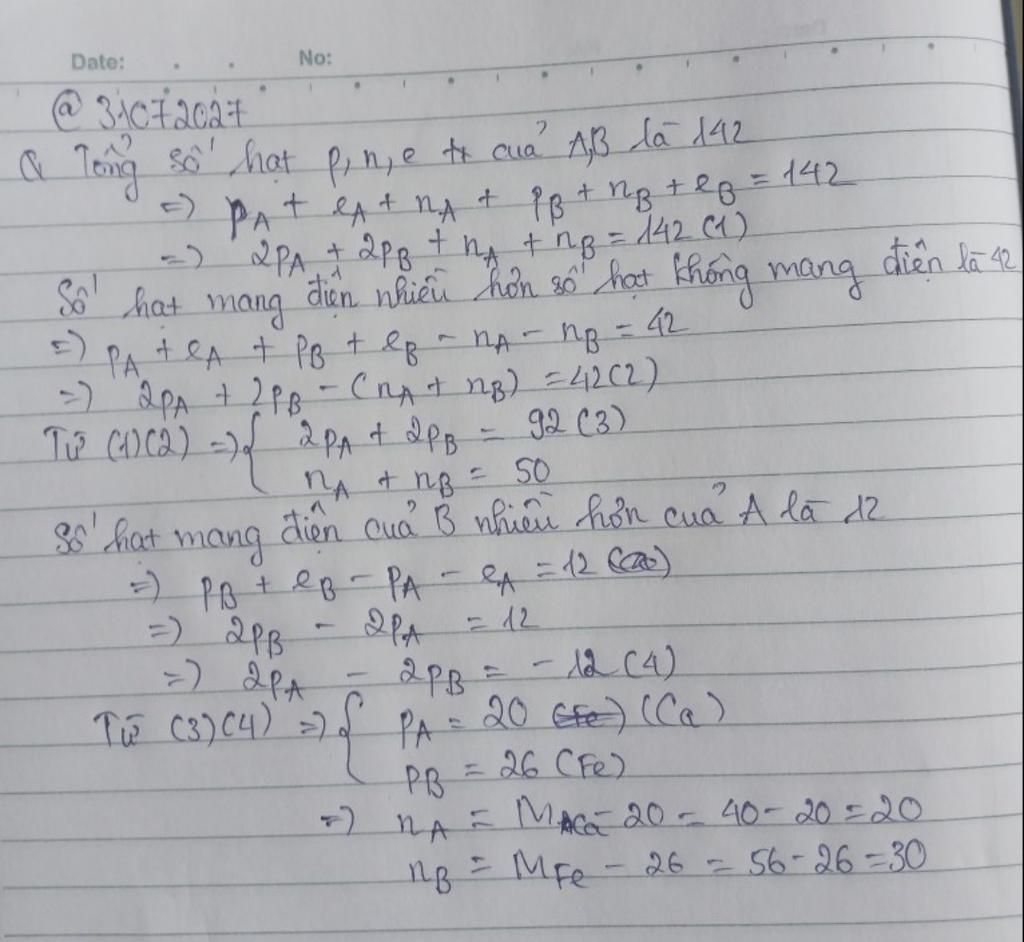 Date: No:
@ 31072027
Q Tổng số hạt p, n, e của A,B là 142
=> pA + eA + nA + pB + nB + eB = 142
=> 2pA + 2pB + nA + nB = 142 (1)
Số hạt mang điện nhiều hơn số hạt không mang điện là 42
=> pA + eA + pB + eB - nA - nB = 42
=> 2pA + 2pB - (nA + nB) = 42 (2)
Từ (1)(2) => { 2pA + 2pB = 92 (3)
nA + nB = 50
Số hạt mang điện của B nhiều hơn của A là 12
=> pB + eB - pA - eA = 12
=> 2pB - 2pA = 12
=> 2pA - 2pB = - 12 (4)
Từ (3)(4) => { pA = 20 (Fe) (Ca)
pB = 26 (Fe)
=> nA = MCa - 20 = 40 - 20 = 20
nB = MFe - 26 = 56 - 26 = 30